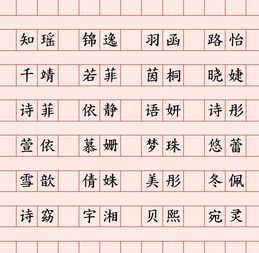 知瑶 锦逸 羽函 路怡
千靖 若菲 茵桐 晓婕
诗菲 依静 语妍 诗彤
萱依 慕姗 梦珠 悠蕾
雪歆 倩姝 美彤 冬佩
诗窈 宇湘 贝熙 宛灵